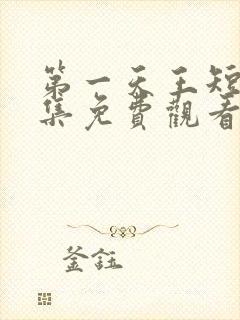 第一天王短
集免費觀看
釜鈺